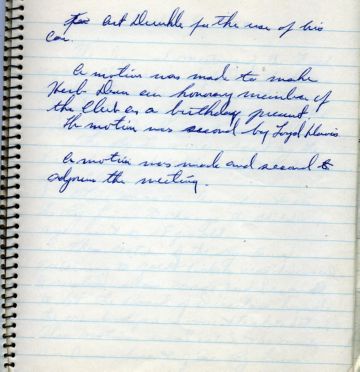 Art Dunkle for the use of his
car.
A motion was made to make
Herb Dunn an honory member of
the Club as a birthday present.
The motion was second by Loyd Davis.
A motion was made and second to
adjourn the meeting.